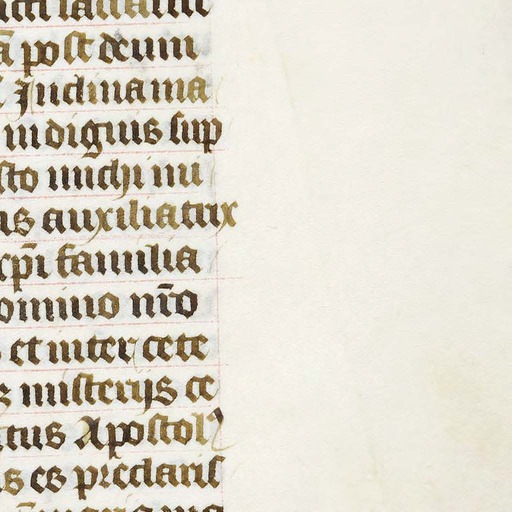 post deum
Inclina ma
indignus sup
sto michi mi
us auxiliatrix
xp̄i familia
omino nr̄o
et inter cete
s misterijs ce
tus Apostol
s es preclaris